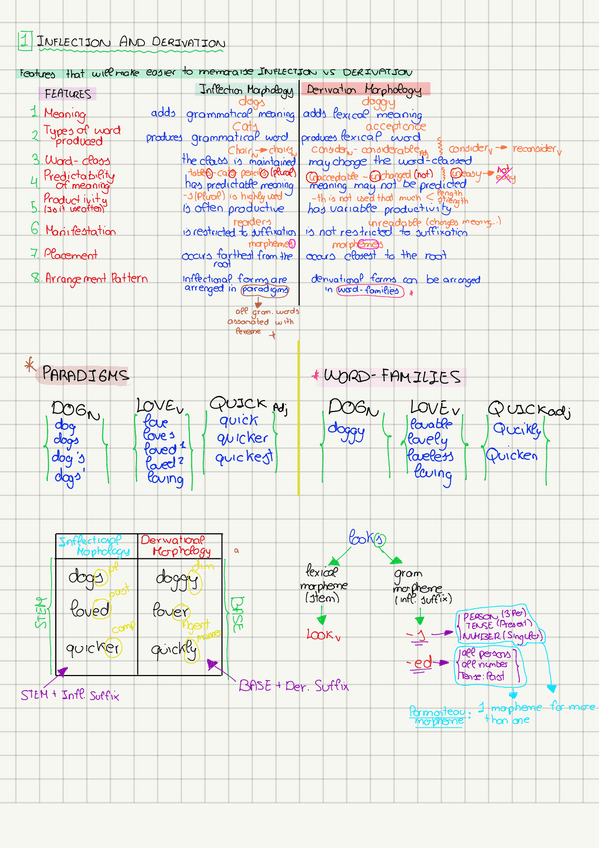 1 INFLECTION AND DERIVATION
Features that will make easier to memoraise INFLECTION VS DERIVATION
FEATURES
Inflection Morphology
Derivation Morphology
dogs
doggy
1 Meaning
adds grammatical meaning
adds lexical meaning
cats
acceptance
2 Types of word produced
produces grammatical word
produces lexical word
chair N → chairs N
consider V - considerable adj
consider V → reconsider V
3 Word-class
the class is maintained
may change the word-classed
table s - cat s person s (plural)
unacceptable - unchanged (not)
uneasy → not easy
4 Predictability of meaning
has predictable meaning
meaning may not be predicted
-s (plural) is highly used
-th is not used that much < length strength
5. Productivity (is it used often)
is often productive
has variable productivity
readers
unreadable (changes meaning..)
6 Manifestation
is restricted to suffixation
is not restricted to suffixation
morphemes
morphemes
7 Placement
occurs farthest from the root
occurs closest to the root
8. Arrangement Pattern
inflectional forms are arranged in paradigms
derivational forms can be arranged in word-families *
all gram. words
associated with
lexeme +
* PARADIGMS
* WORD-FAMILIES
DOG N
LOVE V
QUICK Adj
DOG N
LOVE V
QUICK adj
dog
dogs
dog's
dogs'
love
loves
loved 1
loved 2
loving
quick
quicker
quickest
doggy
lovable
lovely
loveless
loving
Qucikly
Quicken
Inflectional Mophology
Derivational Morphology
a
STEM
BASE
dogs pl
doggy dim
loved past
lover agent
quicker comp
quickly manner
STEM + Infl. Suffix
BASE + Der. Suffix
looks
lexical
morpheme
(stem)
gram
morpheme
(infl. suffix)
LOOK V
-s
-ed
PERSON (3Per)
TENSE (Present)
NUMBER (Singular)
all persons
all number
Tense: Past
Pormonteau morpheme: 1 mopheme for more than one